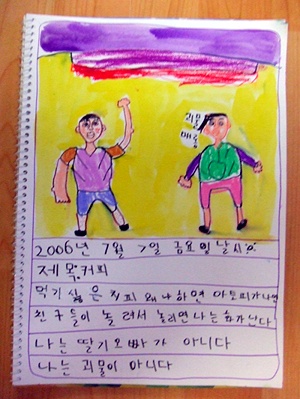 괴물
메롱
2006년 7월 7일 금요일 날씨
제목커피
먹기 싫은 커피 왜냐하면 아토피가나면
친구들이 놀려서 놀리면 나는 화가난다
나는 딸기오빠가 아니다
나는 괴물이 아니다